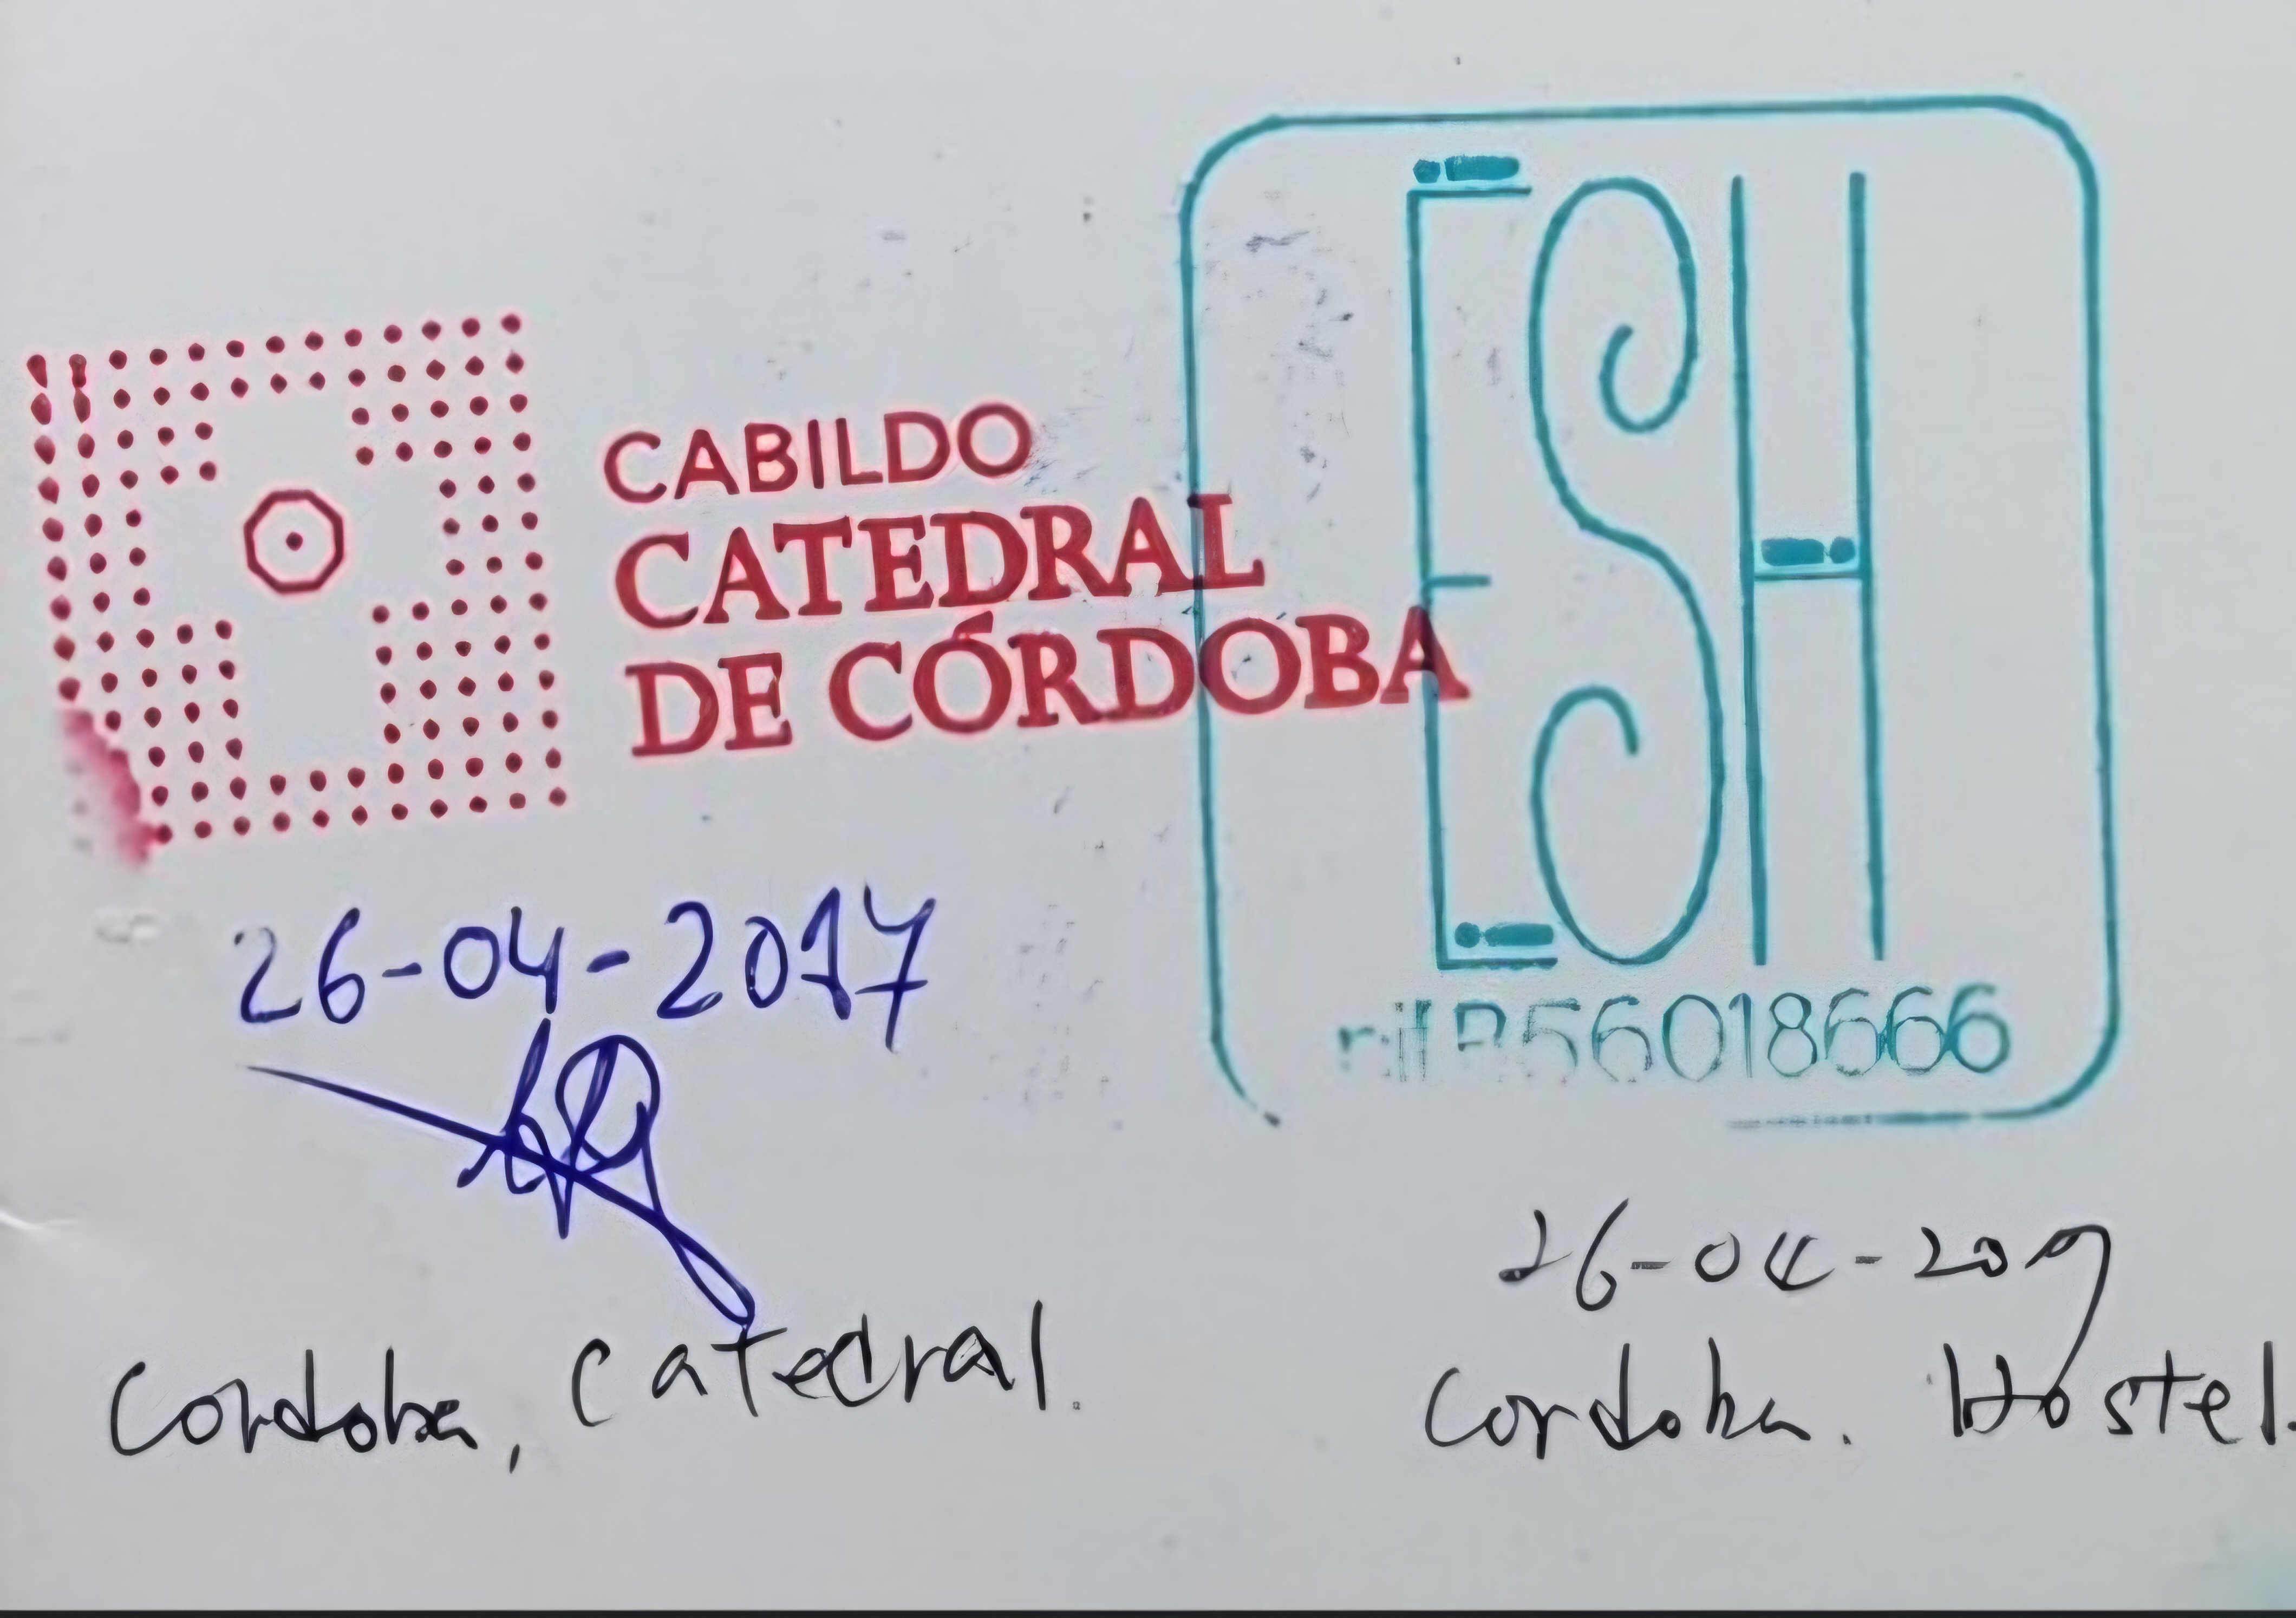 CABILDO
CATEDRAL
DE CÓRDOBA
26-04-2017
Cordoba, Catedral.
ESH
nif B56018666
26-04-2017
Cordoba. Hostel.